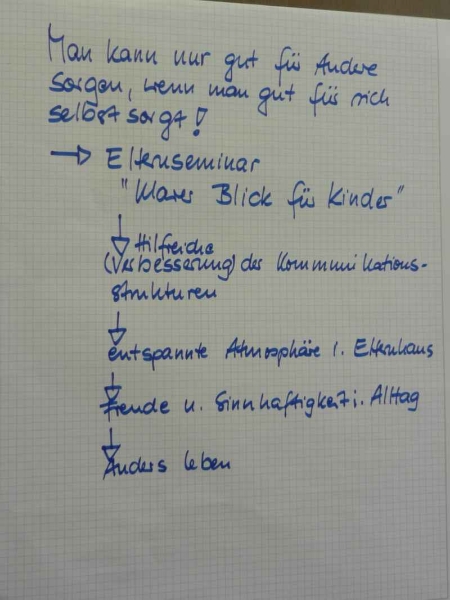 Man kann nur gut für Andere
sorgen, wenn man gut für sich
selbst sorgt!
→ Elternseminar
"Klarer Blick für Kinder"
Hilfreiche
(Verbesserung) der Kommunikations-
strukturen
entspannte Atmosphäre i. Elternhaus
Freude u. Sinnhaftigkeit i. Alltag
Anders leben